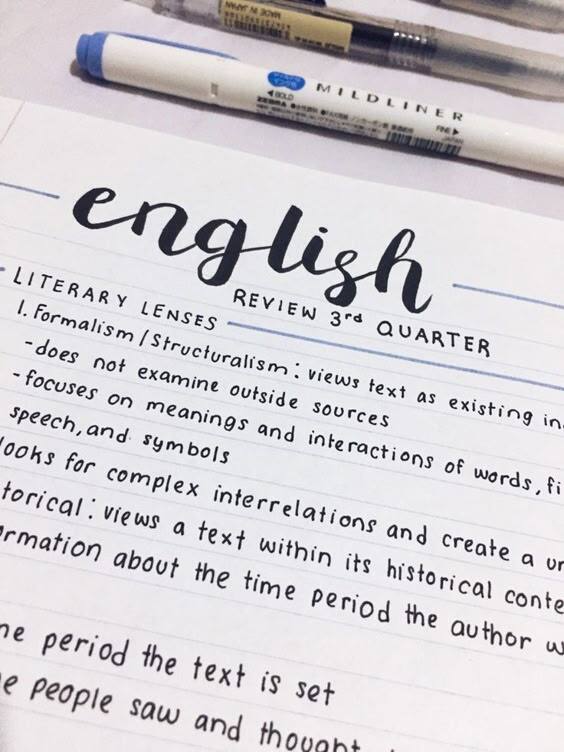 MADE IN JAPAN
MILDLINER
◄BOLD
ZEBRA
FINE►
JAPAN
english
REVIEW 3rd QUARTER
LITERARY LENSES
1. Formalism/Structuralism: views text as existing
-does not examine outside sources
-focuses on meanings and interactions of words,
speech, and symbols
looks for complex interrelations and create a
views a text within its historical
about the time period the author
period the text is set
people saw and thought